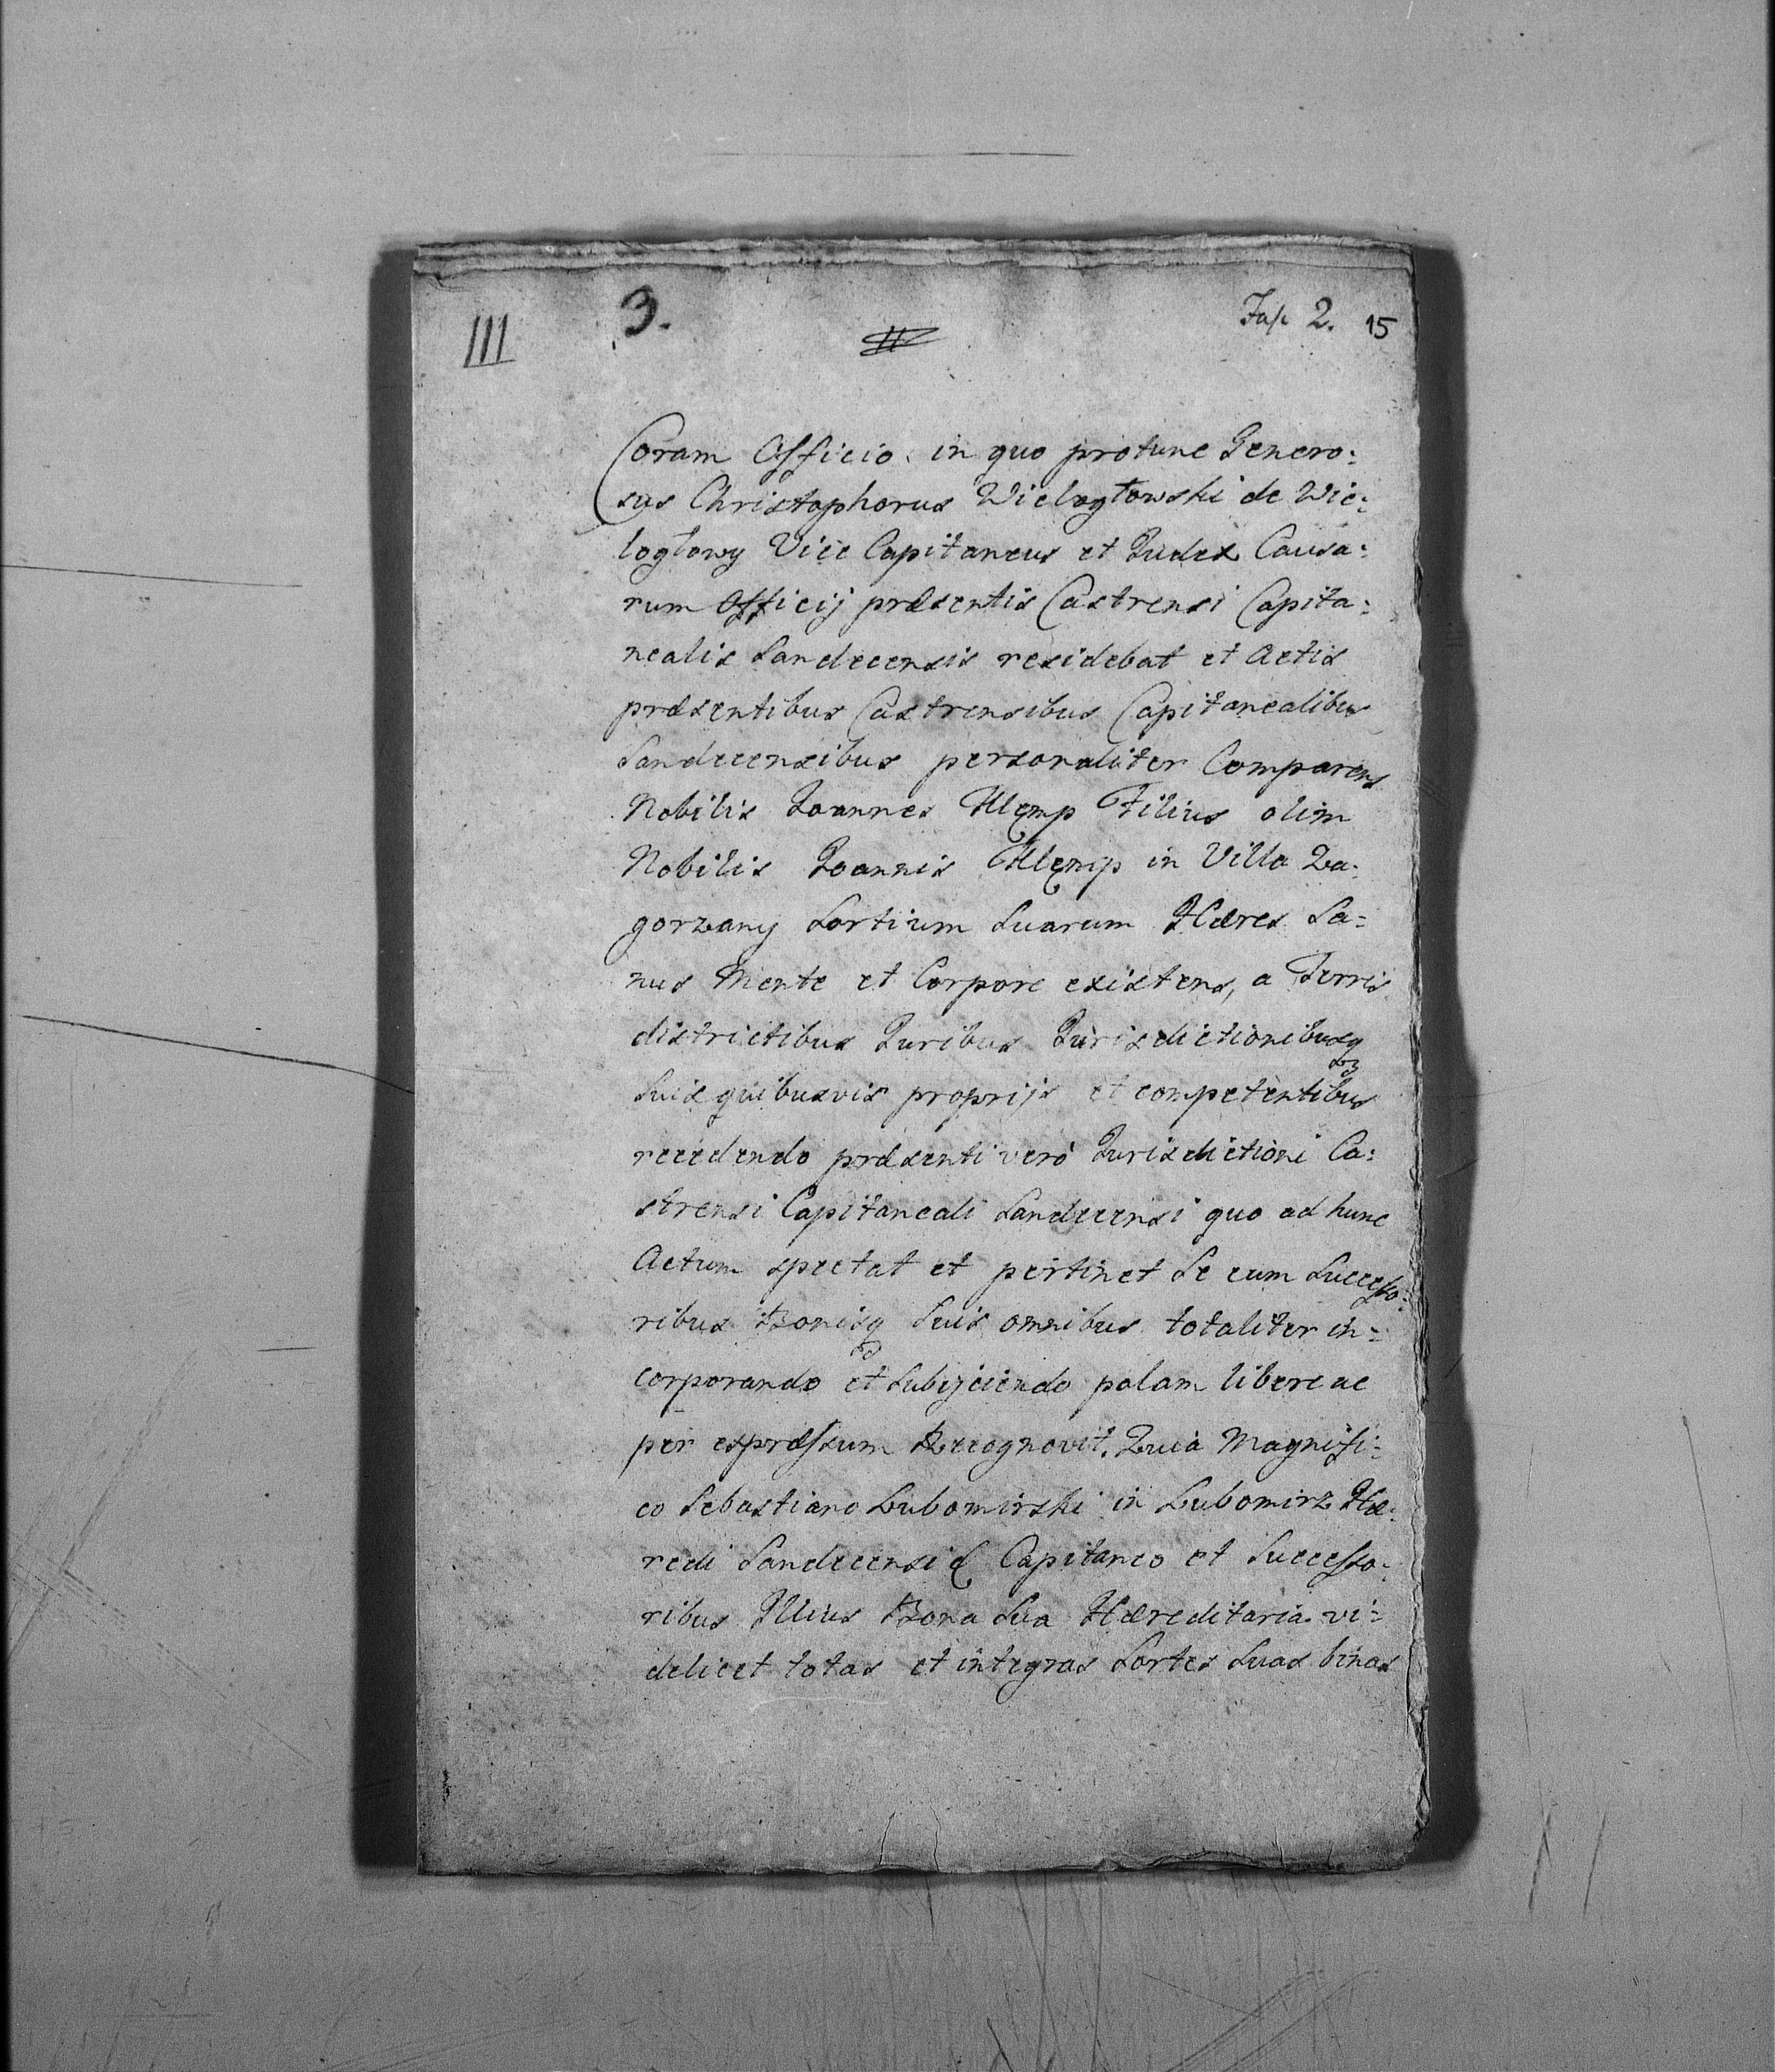 III 3. Fas. 2. 15
Coram Officio in quo protunc Genero:
sus Christophorus Wielogłowski de Wie:
logłowy Vice Capitaneus et Judex Causa:
rum Officij præsentis Castrensi Capita:
nealis Sandecensis residebat et Actis
præsentibus Castrensibus Capitanealibus
Sandecensibus personaliter Comparens
Nobilis Joannes Filius olim
Nobilis Joannis in Villa Za:
gorzany Sortium Suarum Hæres Sa:
nus Mente et Corpore existens, a Terris
districtibus Juribus Jurisdictionibusq
Suis quibusvis proprijs et competentibus
recedendo præsenti verò Jurisdictioni Ca:
strensi Capitaneali Sandecensi quo ad hunc
Actum spectat et pertinet Se cum Successo:
ribus Bonisq Suis omnibus totaliter in:
corporando et Subijciendo palam libere ac
per expræssum Recognovit. Quia Magnifi:
co Sebastiano Lubomirski in Lubomirz Hæ:
redi Sandecensi Capitaneo et Successo:
ribus Illius Bona Sua Hæreditaria vi:
delicet totas et integras Sortes Suas binas